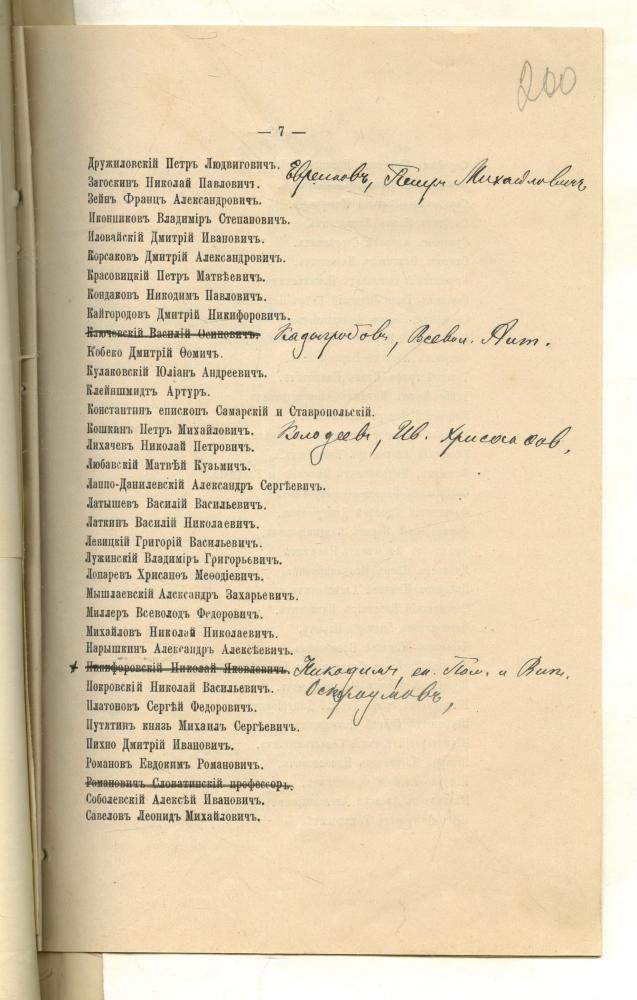 200
— 7 —
Дружиловскій Петръ Людвиговичъ.
Загоскинъ Николай Павловичъ. Евреиновъ, Петръ Михайловичъ
Зейнъ Францъ Александровичъ.
Иконниковъ Владиміръ Степановичъ.
Иловайскій Дмитрій Ивановичъ.
Корсаковъ Дмитрій Александровичъ.
Красовицкій Петръ Матвѣевичъ.
Кондаковъ Никодимъ Павловичъ.
Кайгородовъ Дмитрій Никифоровичъ.
Ключевскій Василій Осиповичъ. Кадыгробовъ, Всевол. Ант.
Кобеко Дмитрій Ѳомичъ.
Кулаковскій Юліанъ Андреевичъ.
Клейншмидтъ Артуръ.
Константинъ епископъ Самарскій и Ставропольскій.
Кошкинъ Петръ Михайловичъ. Колодеевъ, Ив. Хрисанфов,
Лихачевъ Николай Петровичъ.
Любавскій Матвѣй Кузьмичъ.
Лаппо-Данилевскій Александръ Сергѣевичъ.
Латышевъ Василій Васильевичъ.
Латкинъ Василій Николаевичъ.
Левицкій Григорій Васильевичъ.
Лужинскій Владиміръ Григорьевичъ.
Лопаревъ Хрисанѳъ Меѳодіевичъ.
Мышлаевскій Александръ Захарьевичъ.
Миллеръ Всеволодъ Федоровичъ.
Михайловъ Николай Николаевичъ.
Нарышкинъ Александръ Алексѣевичъ.
Никифоровскій Николай Яковлевичъ. Никодимъ, еп. Пол. и Вит.
Покровскій Николай Васильевичъ. Остроумовъ,
Платоновъ Сергѣй Федоровичъ.
Путятинъ князь Михаилъ Сергѣевичъ.
Пихно Дмитрій Ивановичъ.
Романовъ Евдокимъ Романовичъ.
Романовичъ Словатинскій профессоръ.
Соболевскій Алексѣй Ивановичъ.
Савеловъ Леонидъ Михайловичъ.